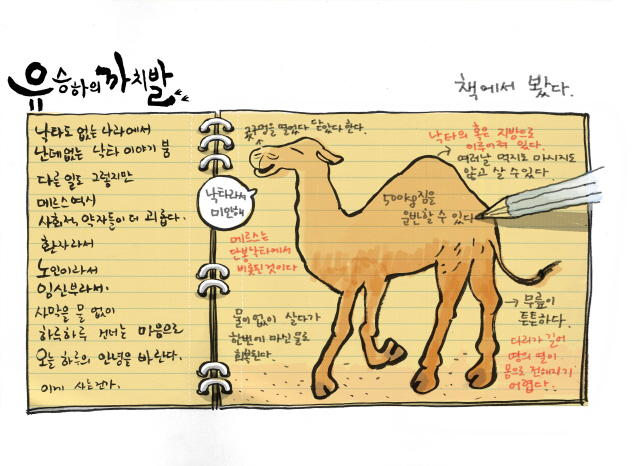 유승하의 까치발
책에서 봤다.
낙타도 없는 나라에서
난데없는 낙타 이야기 붐
다른 일도 그렇지만
메르스 역시
사회적 약자들이 더 괴롭다.
환자라서
노인이라서
임신부라서.
사막을 물 없이
하루하루 건너는 마음으로
오늘 하루의 안녕을 바란다.
이게 사는건가.
낙타라서
미안해
콧구멍을 열었다 닫았다 한다.
낙타의 혹은 지방으로
이루어져 있다.
여러날 먹지도 마시지도
않고 살 수 있다.
500kg 짐을
운반할 수 있다
메르스는
단봉낙타에서
비롯된 것이다
물이 없이 살다가
한번에 마신 물로
회복된다.
무릎이
튼튼하다.
다리가 길어
땅의 열이
몸으로 전해지기
어렵다.